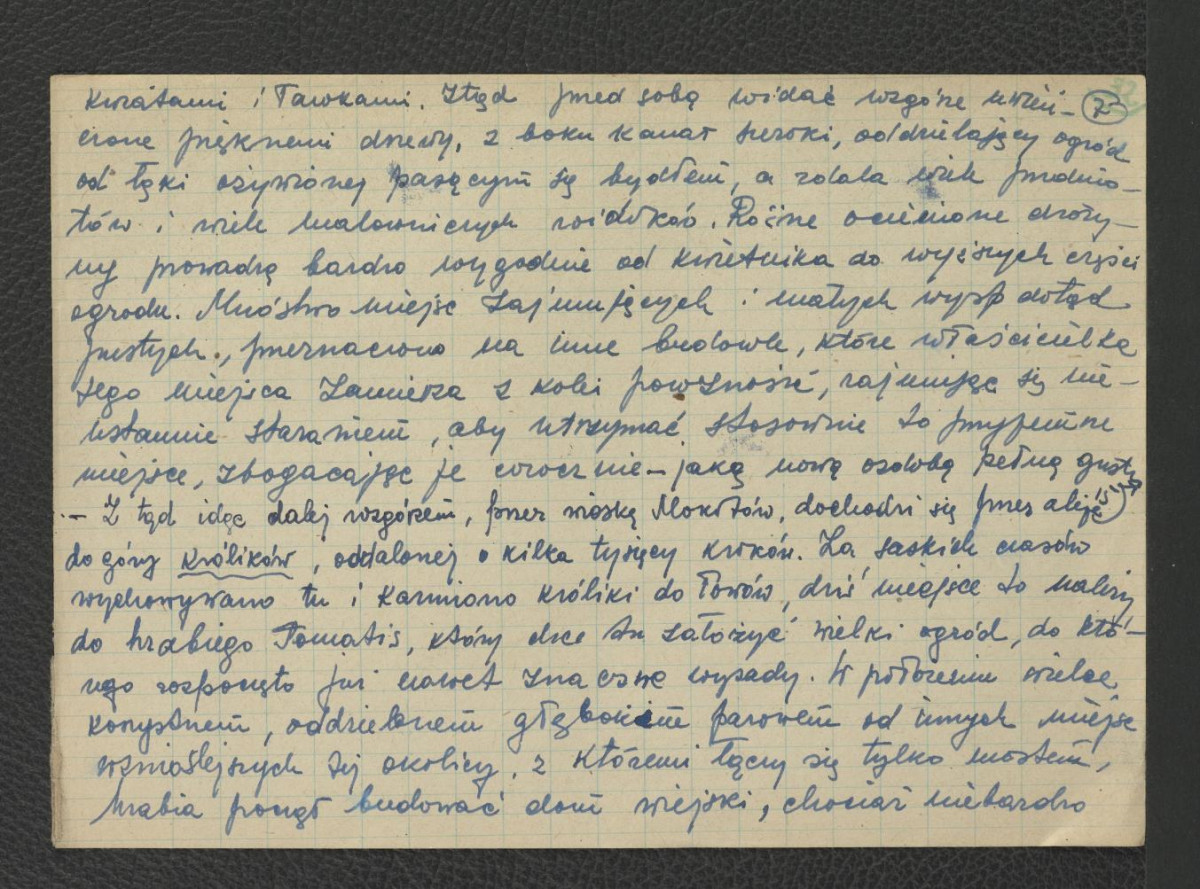 kwiatami i ławkami. Ztąd przed sobą widać wzgórze uwień- 7
czone pięknemi drzewy, z boku kanał szeroki, oddzielający ogród
od łąki ożywionej pasącym się bydłem, a zdala wiele przedmio-
tów i wiele malowniczych widoków. Różne ocienione droży-
ny prowadzą bardzo wygodnie od kwietnika do wyższych części
ogrodu. Mnóstwo miejsc zajmujących i małych wysp dotąd
pustych, przeznaczono na inne budowle, które właścicielka
tego miejsca zamierza z kolei powznosić, zajmując się nie-
ustannie staraniem, aby utrzymać stosownie to przyjemne
miejsce, zbogacając je corocznie - jaką nową ozdobą pełną gustu
- Z tąd idąc dalej wzgórzem, przez wioskę Mokotów, dochodzi się przez aleję
do góry Królików, oddalonej o kilka tysięcy kroków. Za saskich czasów
wychowywano tu i karmiono króliki do łowów, dziś miejsce to należy
do hrabiego Tomatis, który chce tu założyć wielki ogród, do któ-
rego rozpoczęto już nawet znaczne wysady. W położeniu wielce
korzystnem, oddzielonem głębokim parowem od innych miejsc
wznioślejszych tej okolicy, z któremi łączy się tylko mostem,
hrabia począł budować dom wiejski, chociaż niebardzo